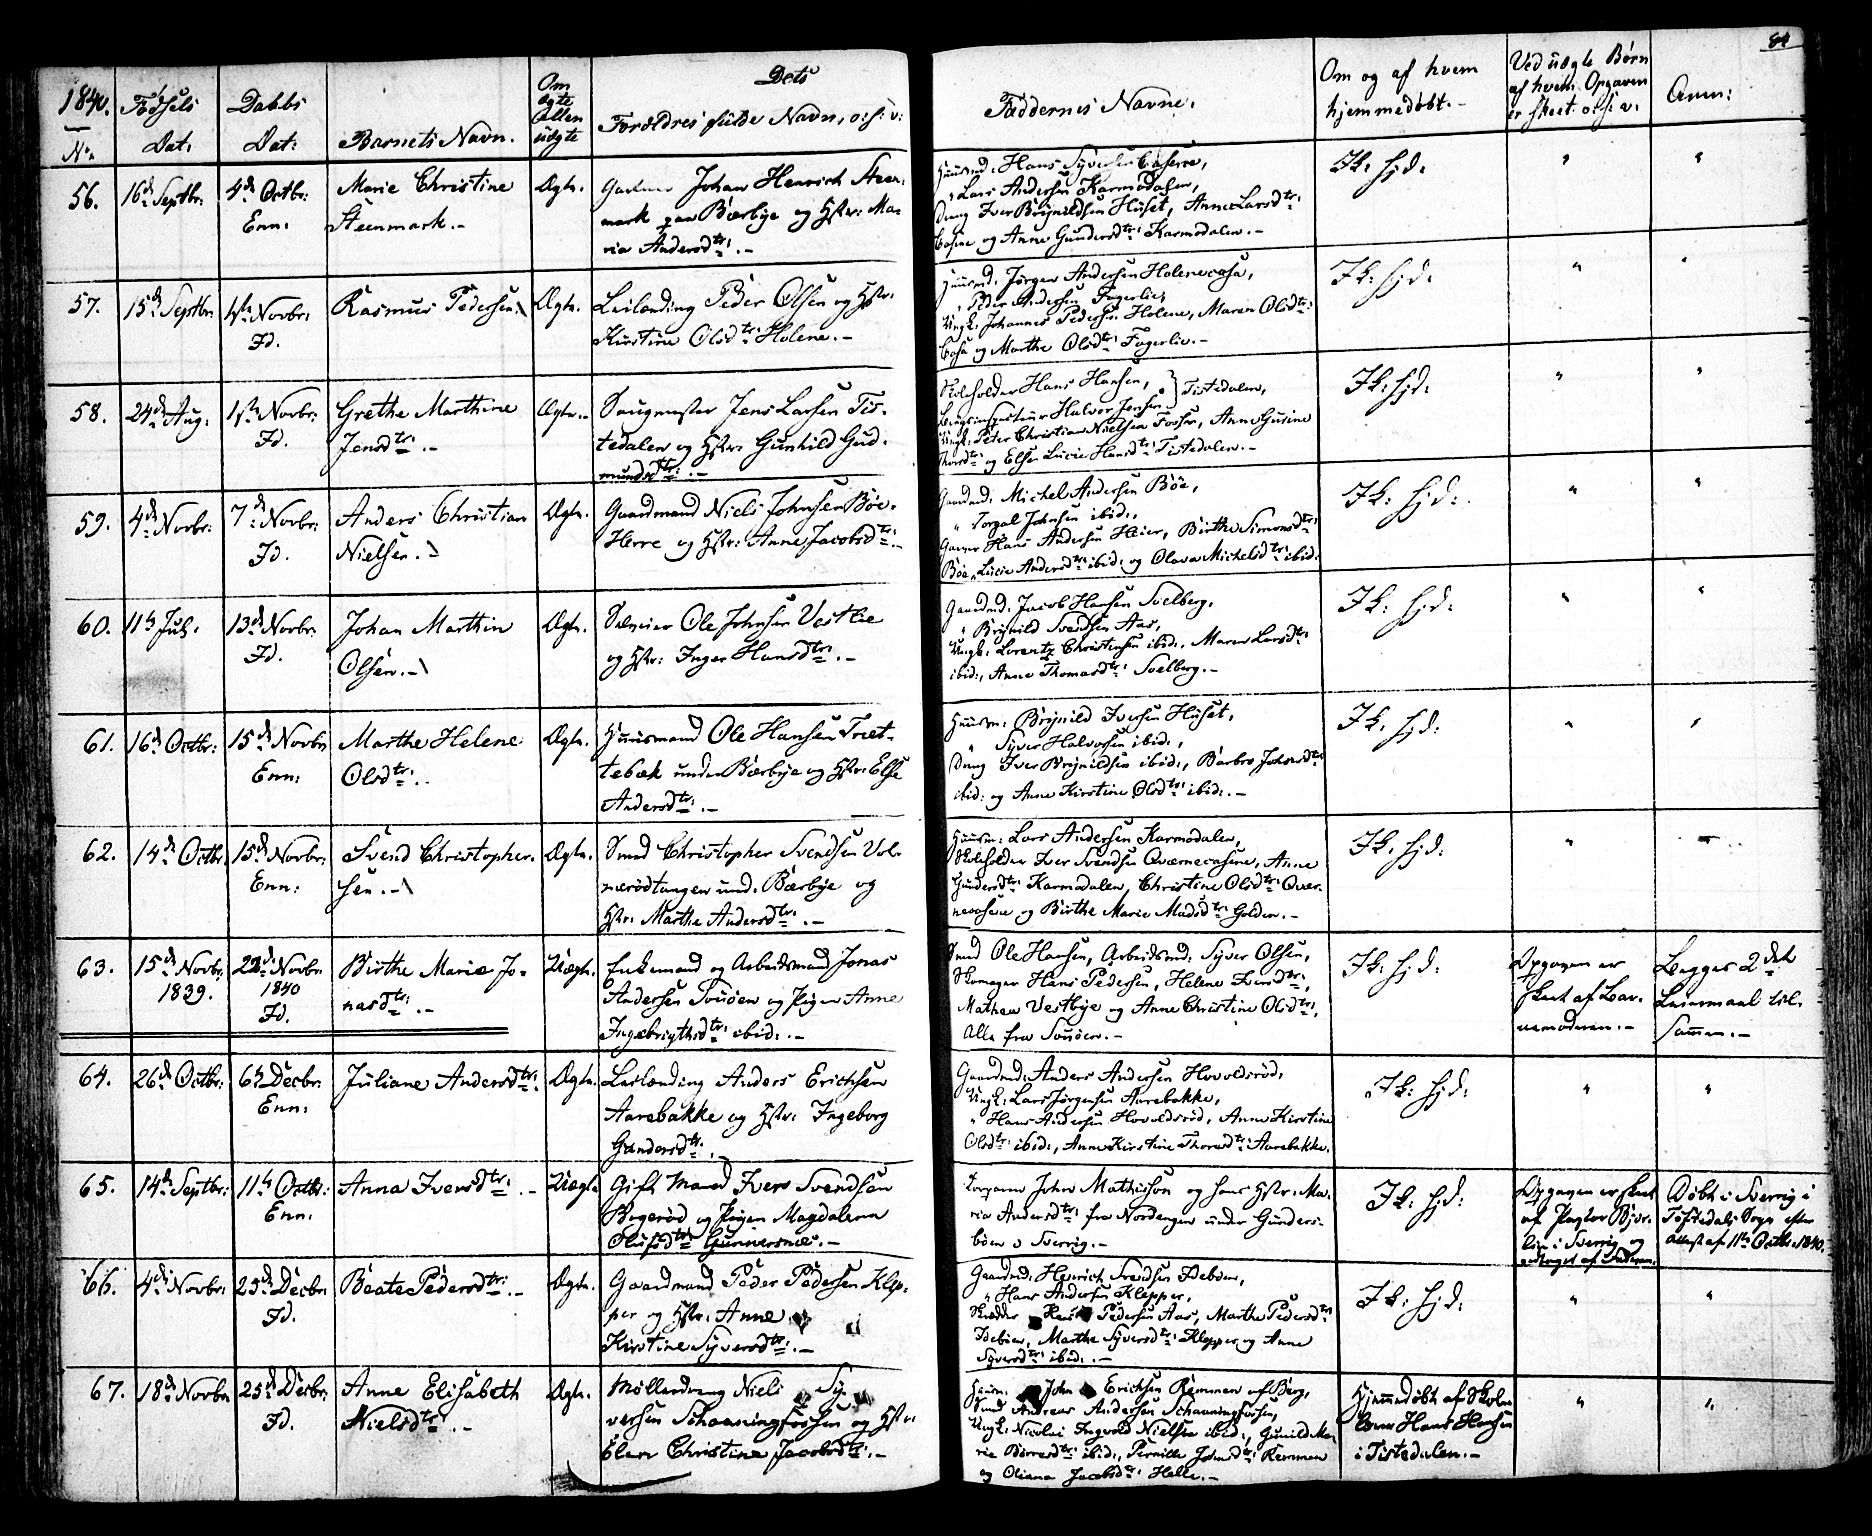 84
1840.
No.
Fødsels
Dat:
Daabs
Dat:
Barnets Navn.
Om
ægte
æller
uægte
Dets
Forældres fulde Navn, o: s: v:
Faddernes Navne.
Om og af hvem
hjemmedøbt.-
Ved uægte Børn
af hvem Opgaven
er skeet o: s: v:
Anm:
56.
16de Septbr:
4de Octbr:
Enn:
Marie Christine
Steenmark.-
Ægte.
Johan Henrich Steen-
mark paa Bærbye og Hstr: Ma-
ria Andersdtr:.-
Huusmd: Hans Syversen
" Lars Andersen Karmodalen,
Dreng Iver Brynildsen Huset, Anne Larsdtr:
og Anne Gundersdtr: Karmodalen.-
Ik: hjd:
"
"
57.
15de Septbr:
1ste Novbr:
Id.
Rasmus Pedersen.
Ægte.
Leilænding Peder Olsen og Hstr:
Kirstine Olsdtr: Holene.-
Huusmd: Jørgen Andersen Holenecasa,
" Peder Andersen Fagerlie,
Ungk: Johannes Pedersen Holene, Maren Olsdtr:
Casa og Marthe Olsdtr: Fagerlie.-
Ik: hjd:
"
"
58.
24de Aug:
1ste Novbr:
Id.
Grethe Marthine
Jensdtr:.-
Ægte.
Saugmester Jens Larsen Tis-
tedalen og Hstr: Gunhild Gud-
mundsdtr:.-
Skoleholder Hans Hansen, } Tistedalen,
Halvor Jensen
Ungk: Peter Christian Nielsen Fosser, Anne Gurine
Thorsdtr: og Else Lucie Hansdtr: Tistedalen.-
Ik: hjd:
"
"
59.
4de Novbr:
7de Novbr:
Id.
Anders Christian
Nielsen.
Ægte.
Gaardmand Niels Johnsen Bøe-
Herre og Hstr: Anne Jacobsdtr:.-
Gaardmd: Michel Andersen Bøe,
" Torgal Johnsen ibid:,
Hans Andersen Heier, Birthe Simonsdtr:
Bøe, Lucie Andersdtr: ibid: og Olava Michelsdtr: ibid:
Ik: hjd:
"
"
60.
11te Jul.
13de Novbr:
Id.
Johan Marthin
Olsen.-
Ægte.
Ole Johnsen Vestlie
og Hstr: Inger Hansdtr:.-
Gaardmd: Jacob Hansen Svelberg,
" Brynild Svendsen Aas,
Ungk: Lorentz Christensen ibid:, Maren Larsdtr:
ibid:, Anne Thomasdtr: Svelberg.-
Ik: hjd:
"
"
61.
16de Octbr:
15de Novbr:
Enn:
Marthe Helene
Olsdtr:.
Ægte.
Huusmand Ole Hansen Træt-
tebæk under Bærbye og Hstr: Else
Andersdtr:.-
Huusm: Brynild Iversen Huset,
" Syver Halvorsen ibid:,
Dreng Iver Brynildsen ibid:, Barbro Johnsdtr:
ibid: og Anne Kirstine Olsdtr: ibid:.-
Ik: hjd:
"
"
62.
14de Octbr:
15de Novbr:
Enn:
Svend Christopher-
sen.-
Ægte.
Smed Christopher Svendsen Vol-
nerødtangen und. Bærbye og
Hstr: Marthe Andersdtr:.-
Huusm: Lars Andersen Karmodalen,
Skoleholder Iver Svendsen Qværnecasene, Anne
Gundersdtr: Karmodalen, Christine Olsdtr: Qvær-
necasene og Birthe Marie Madsdtr: Golden.-
Ik: hjd:
"
"
63.
15de Novbr:
1839.
22de Novbr:
1840
Id.
Birthe Marie Jo-
nasdtr:.-
Uægte.
Enkemand og Arbeidsmand Jonas
Andersen Souøen og Pigen Anne
Ingebrigthsdtr: ibid:.-
Smed Ole Hansen, Arbeidsmd: Syver Olsen,
Skomager Hans Pedersen, Helene Iversdtr:,
Mathea Vestbye og Anne Christine Olsdtr:,
Alle fra Souøen.-
Ik: hjd:
Opgaven er
skeet af Bar-
nemoderen.-
Begges 2det
Leiermaal til-
sammen.-
64.
26de Octbr:
6te Decbr:
Enn:
Juliane Andersdtr:.
Ægte.
Leilænding Anders Erichsen
Aarebakke og Hstr: Ingeborg
Gundersdtr:.-
Gaardmd: Anders Andersen Hovoldsrød,
Ungk: Lars Jørgensen Aarebakke,
" Hans Andersen Hovoldsrød, Anne Kirstine
Olsdtr: ibid:, Anne Kirstine Thoresdtr: Aarebakke.
Ik: hjd:
"
"
65.
14de Septbr:
11te Octbr:
Enn:
Anna Iversdtr:.-
Uægte
Gift Mand Iver Svendsen
Bøgerød og Pigen Magdalena
Olufsdtr: Gunnersnæs.-
Torparn John Mathisson og hans Hstr: Ma-
ria Andersdtr: fra Nordengen under Gunders-
böen i Sverrig.-
Ik: hjd:
Opgaven er skeet
af Pastor
i Sverrig og
af Faderen.
Døbt i Sverrig i
Töftedals Sogn efter
Attest af 11te Octbr: 1840.
66.
4de Novbr:
25de Decbr:
Id.
Beate Pedersdtr:.-
Ægte.
Gaardmand Peder Pedersen Klep-
per og Hstr: Anne
Kirstine Syversdtr:.-
Gaardmd: Henrich Svendsen Idebøen,
" Hans Andersen Klepper,
Skrædder Pedersen Aas, Marthe Pedersdtr:
Idebøen, Marthe Syversdtr: Klepper og Anne
Syversdtr: ibid:.-
Ik: hjd:
"
"
67.
18de Novbr:
25de Decbr:
Id.
Anne Elisabeth
Nielsdtr:.-
Ægte.
Møllerdreng Niels Sy-
versen Schonningfossen og Hstr:
Elen Christine Jacobsdtr:.-
Huusm: John Erichsen Remmen af Berg,
Smed Andreas Andersen Schonningfossen,
Ungk: Nicolai Ingvold Nielsen ibid:, Gunild Ma-
rie ibid:, Pernille Johnsdtr: Remmen
og Oliana Jacobsdtr: Helle.-
Hjemmedøbt af Skole-
Hans Hansen
i Tistedalen.-
"
"